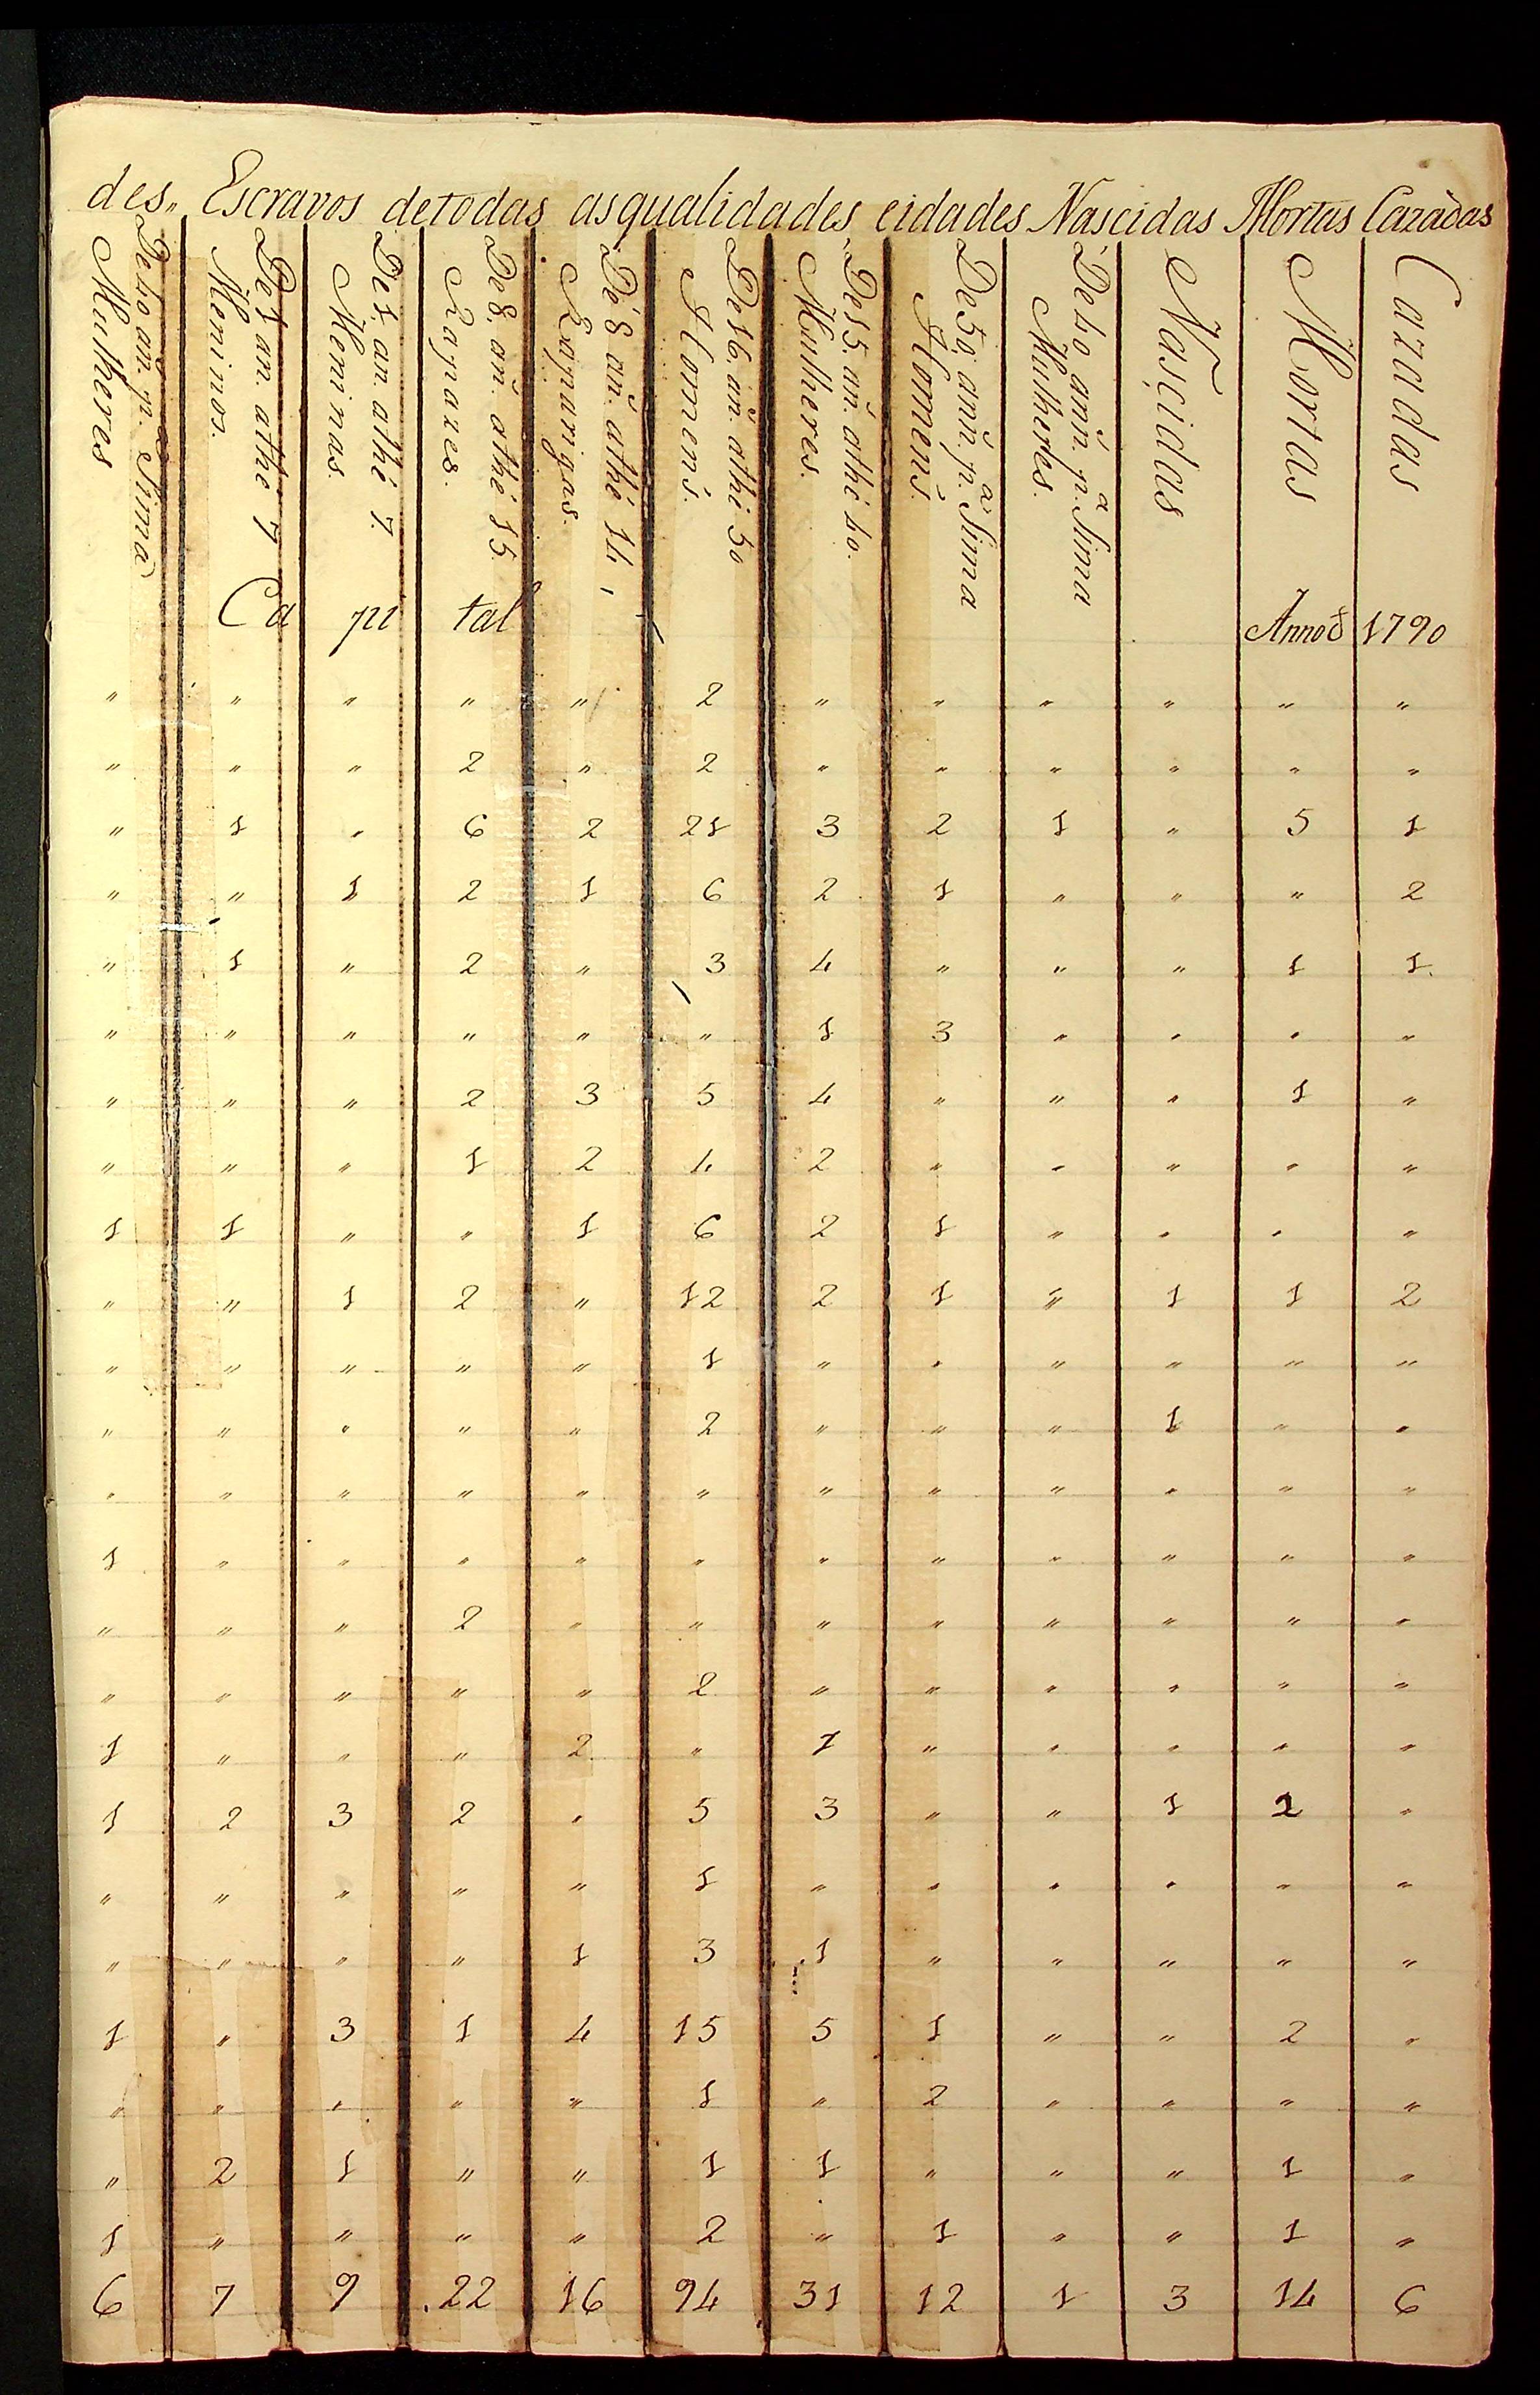 des„ Escravos detodas asqualidades eidades Nascidas Mortas Cazadas
De 40 an. p.ª Sima Mulheres
De 1 an. athe 7 Meninos.
De 1. an. athé 7. Meninas.
De 8. añ. athé 15. Rapazes.
De 8 añ. athé 14. Raparigas.
De 16. añ. athé 50 Homens.
De 15. añ. athé 40. Mulheres.
De 50. añ. p.ª Sima Homens.
De 40 añ. p.ª Sima Mulheres.
Nascidas
Mortas
Cazadas
Ca pi tal Anno d 1790
„ „ „ „ „ 2 „ „ „ „ „ „
„ „ „ 2 „ 2 „ „ „ „ „ „
„ 1 „ 6 2 21 3 2 1 „ 5 1
„ „ 1 2 1 6 2 1 „ „ „ 2
„ 1 „ 2 „ 3 4 „ „ „ 1 1
„ „ „ „ „ „ 1 3 „ „ „ „
„ „ „ 2 3 5 4 „ „ „ 1 „
„ „ „ 1 2 4 2 „ „ „ „ „
1 1 „ „ 1 6 2 1 „ „ „ „
„ „ 1 2 „ 12 2 1 „ 1 1 2
„ „ „ „ „ 1 „ „ „ „ „ „
„ „ „ „ „ 2 „ „ „ 1 „ „
„ „ „ „ „ „ „ „ „ „ „ „
1 „ „ „ „ „ „ „ „ „ „ „
„ „ „ 2 „ „ „ „ „ „ „ „
„ „ „ „ „ 2 „ „ „ „ „ „
1 „ „ „ 2 „ 1 „ „ „ „ „
1 2 3 2 „ 5 3 „ „ 1 2 „
„ „ „ „ „ 1 „ „ „ „ „ „
„ „ „ „ 1 3 1 „ „ „ „ „
1 „ 3 1 4 15 5 1 „ „ 2 „
„ „ „ „ „ 1 „ 2 „ „ „ „
„ 2 1 „ „ 1 1 „ „ „ 1 „
1 „ „ „ „ 2 „ 1 „ „ 1 „
6 7 9 22 16 94 31 12 1 3 14 6